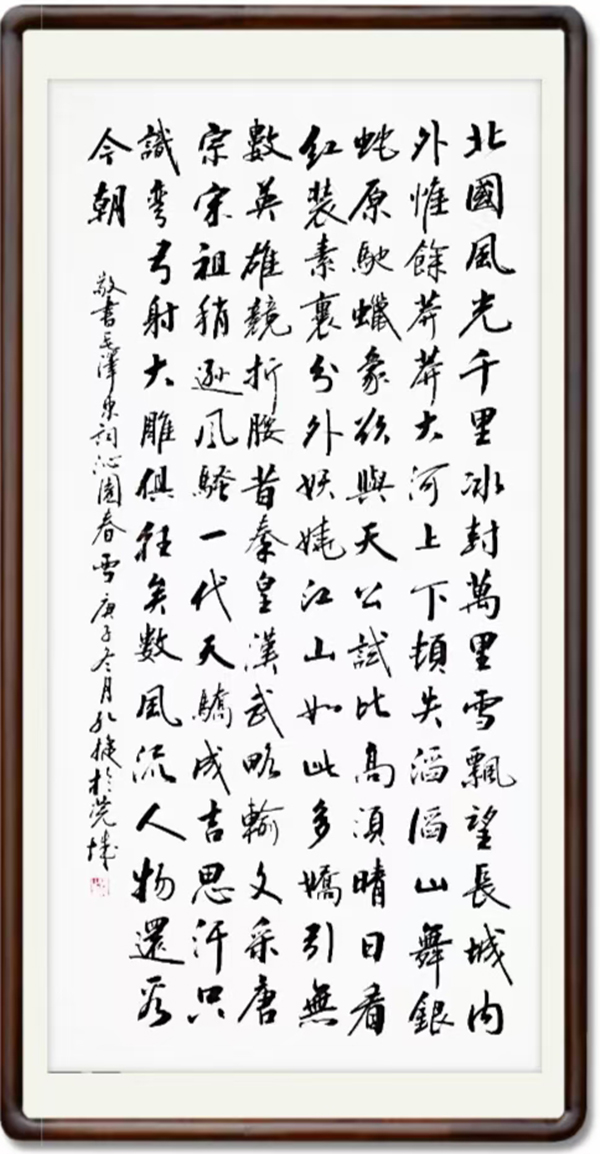 北國風光千里冰封萬里雪飄望長城内
外惟餘莽莽大河上下頓失滔滔山舞銀
蛇原馳蠟象欲與天公試比高須晴日看
红裝素裹分外妖娆江山如此多嬌引無
數英雄競折腰昔秦皇漢武略輸文采唐
宗宋祖稍遜风騷一代天驕成吉思汗只
識彎弓射大雕俱往矣數風流人物還看
今朝
敬書毛澤東詞沁園春雪庚子冬月孔捷於莞城